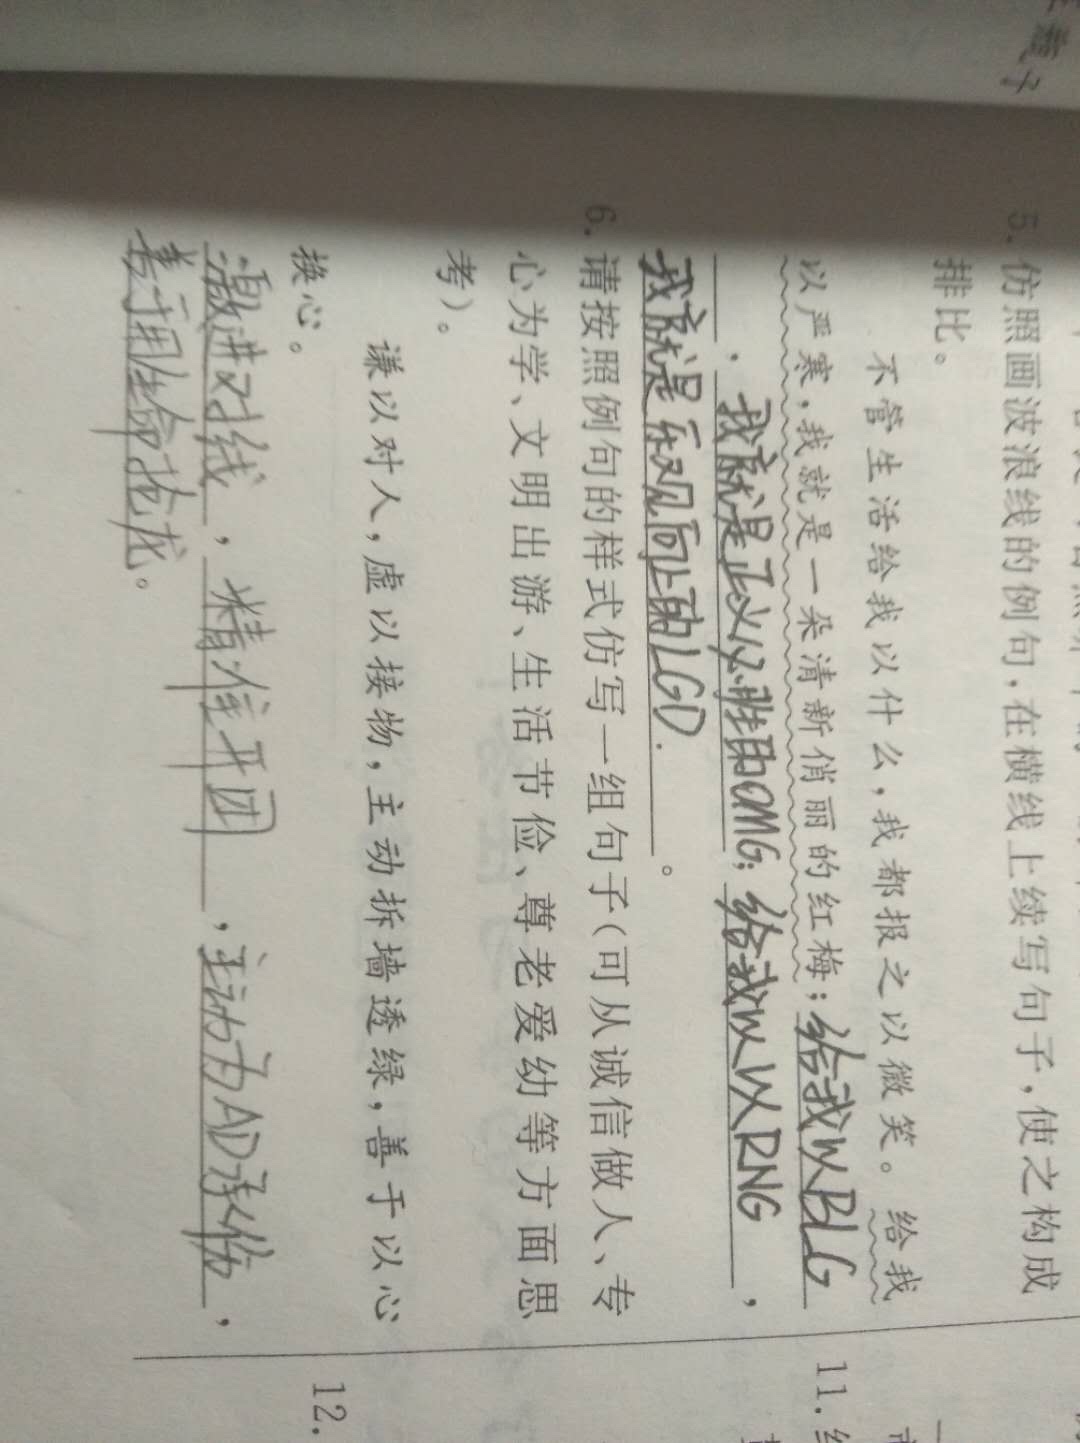 5. 仿照画波浪线的例句,在横线上续写句子,使之构成
排比。
不管生活给我以什么,我都报之以微笑。给我
以严寒,我就是一朵清新俏丽的红梅;给我以BLG
,我就是正义必胜的OMG;给我以以RNG,
我就是乐观向上的LGD.。
6. 请按照例句的样式仿写一组句子(可从诚信做人、专
心为学、文明出游、生活节俭、尊老爱幼等方面思
考)。
谦以对人,虚以接物,主动拆墙透绿,善于以心
换心。
激进对线,精准开团,主动为AD承伤,
善用生命抢龙。
11.
12.